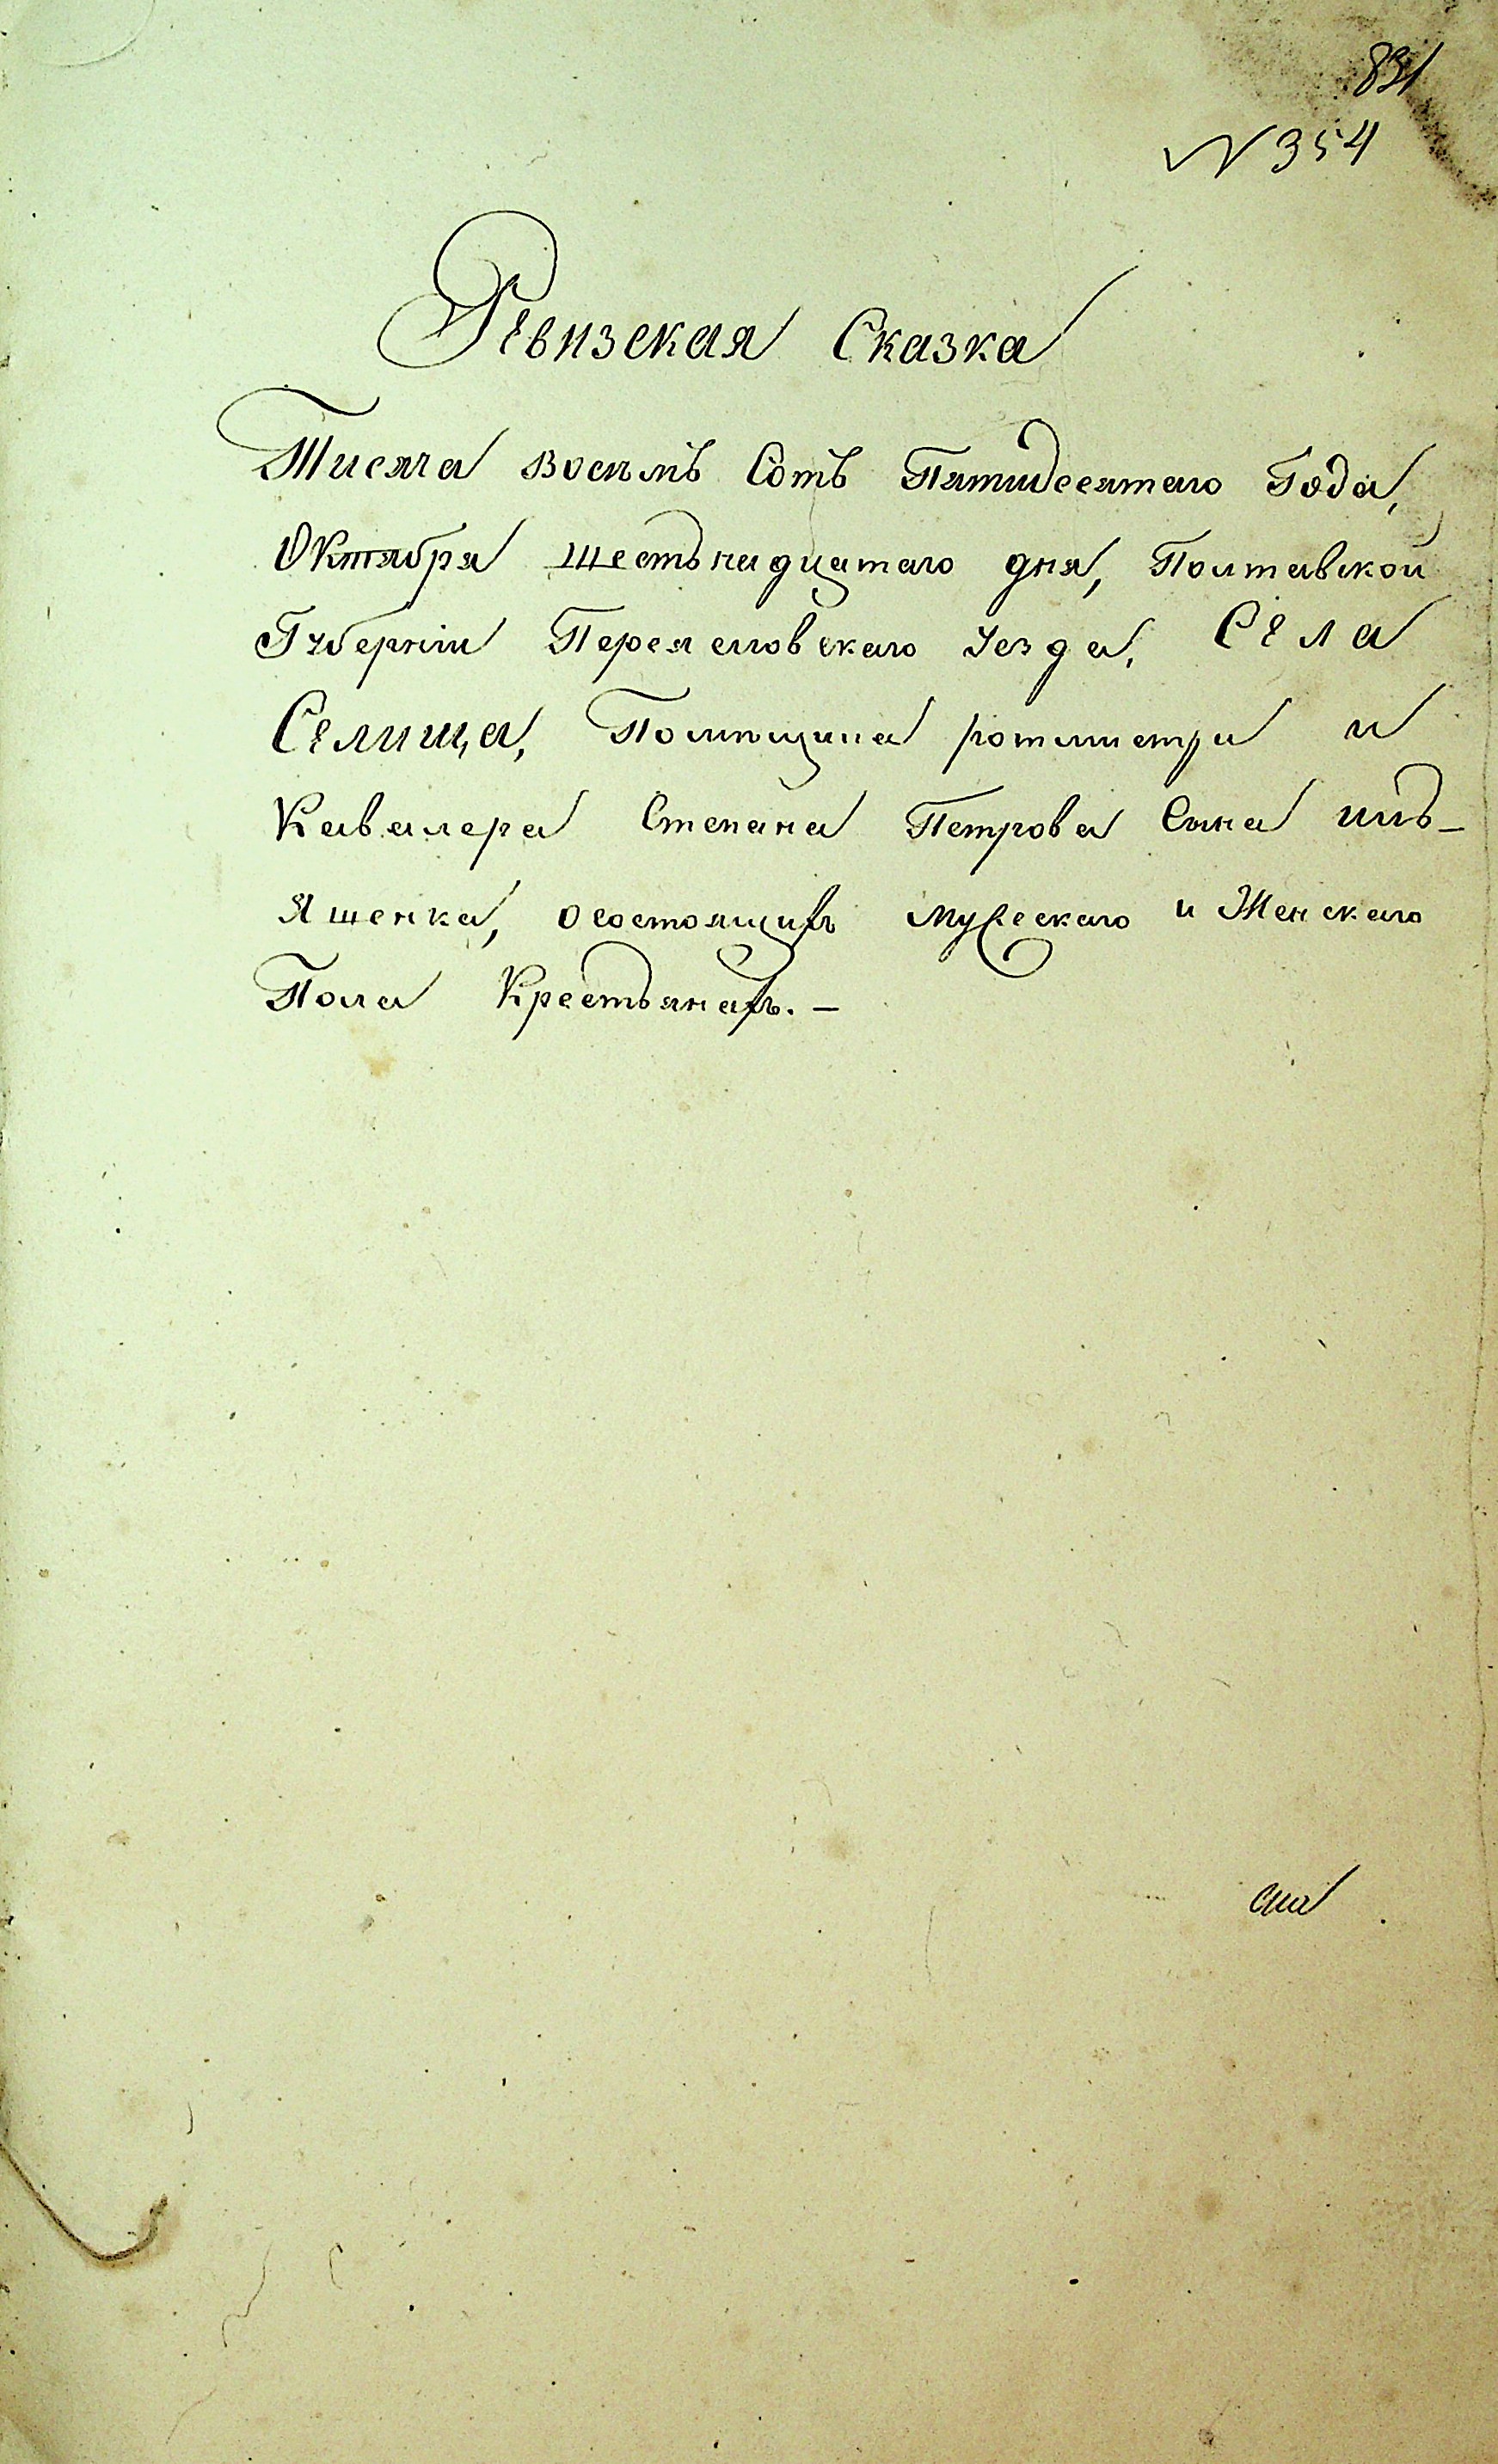 831
№ 354
Ревизская Сказка
Тисяча восемъ Сотъ Пятидесятаго Года,
Октября шестьнадцатаго дня, Полтавской
Губерніи Переяславского уезда, Села
Селища, Помѣщика ротмистра и
Кавалера Степана Петрова Сына
яшенка, осостоящихъ мужескаго и Женскаго
Пола Крестьянахъ. –